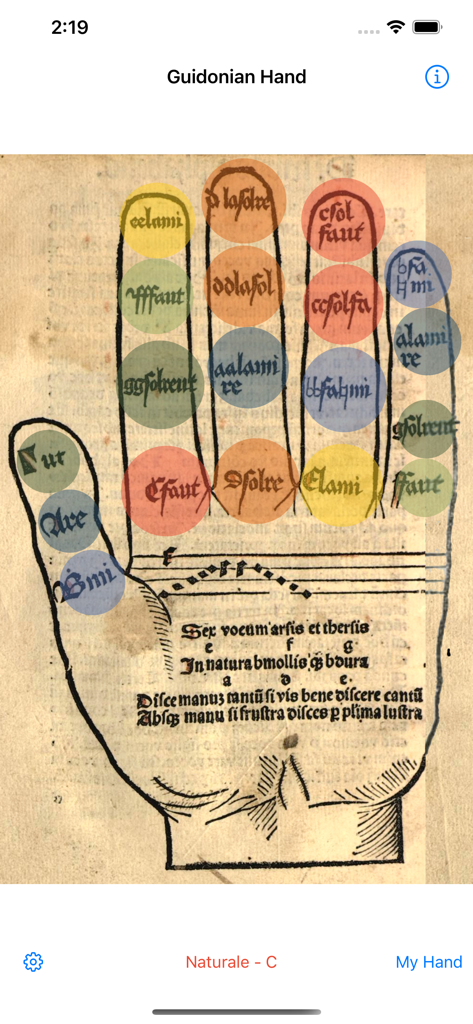 2:19
Guidonian Hand
eelami
d lasolre
csol
faut
b fa
♮ mi
fffaut
ddlasol
ccsolfa
alami
re
ggsolreut
aalami
re
bbfa♮mi
gsolreut
Γ ut
Are
♮mi
Cfaut
Dsolre
Elami
ffaut
Sex vocum arsis et thersis
e f g
In natura bmollis qꝫ bdura
a d e
Disce manuꝫ tantũ si vis bene discere cantũ
Absqꝫ manu si frustra disces ꝑ plĩma lustra
Naturale - C
My Hand